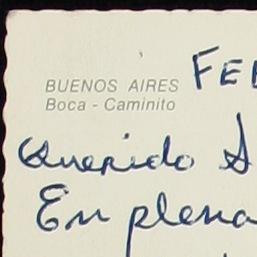 FE
BUENOS AIRES
Boca - Caminito
Querido
En plena